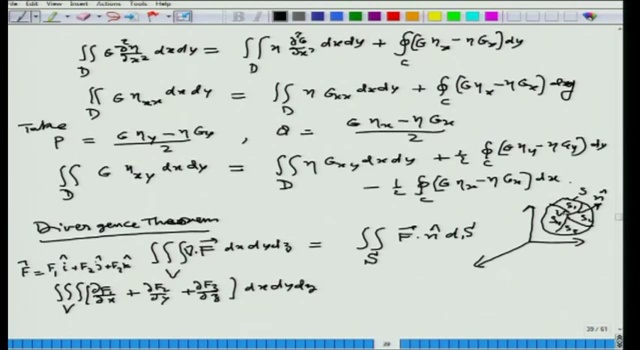 ∬_D G ∂²η/∂x² dxdy = ∬_D η ∂²G/∂x² dxdy + ∮_C (Gη_x − ηG_x) dy
∬_D G η_xx dxdy = ∬_D η G_xx dxdy + ∮_C (Gη_x − ηG_x) dy
Take P = (Gη_y − ηG_y)/2 , Q = (Gη_x − ηG_x)/2
∬_D G η_xy dxdy = ∬_D η G_xy dxdy + ½ ∮_C (Gη_y − ηG_y) dy
− ½ ∮_C (Gη_x − ηG_x) dx.
Divergence Theorem
∭_V ∇·F⃗ dxdydz = ∬_S F⃗·n̂ dS
F⃗ = F₁î + F₂ĵ + F₃k̂
∭_V [∂F₁/∂x + ∂F₂/∂y + ∂F₃/∂z] dxdydz
S n̂
S₁
29 / 61
39